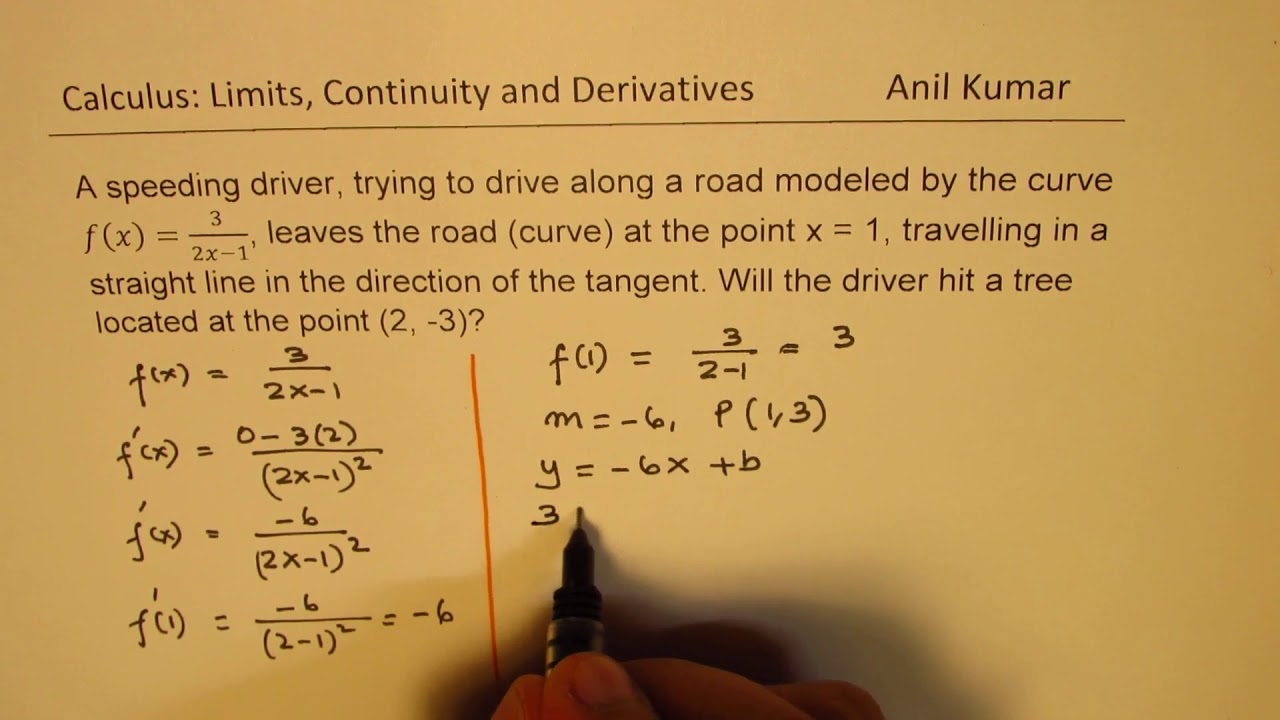 Calculus: Limits, Continuity and Derivatives Anil Kumar
A speeding driver, trying to drive along a road modeled by the curve
f(x) = 3/(2x−1), leaves the road (curve) at the point x = 1, travelling in a
straight line in the direction of the tangent. Will the driver hit a tree
located at the point (2, -3)?
f(x) = 3/(2x−1)
f'(x) = (0 − 3(2))/(2x−1)²
f'(x) = −6/(2x−1)²
f'(1) = −6/(2−1)² = −6
f(1) = 3/(2−1) = 3
m = −6, P(1,3)
y = −6x + b
3